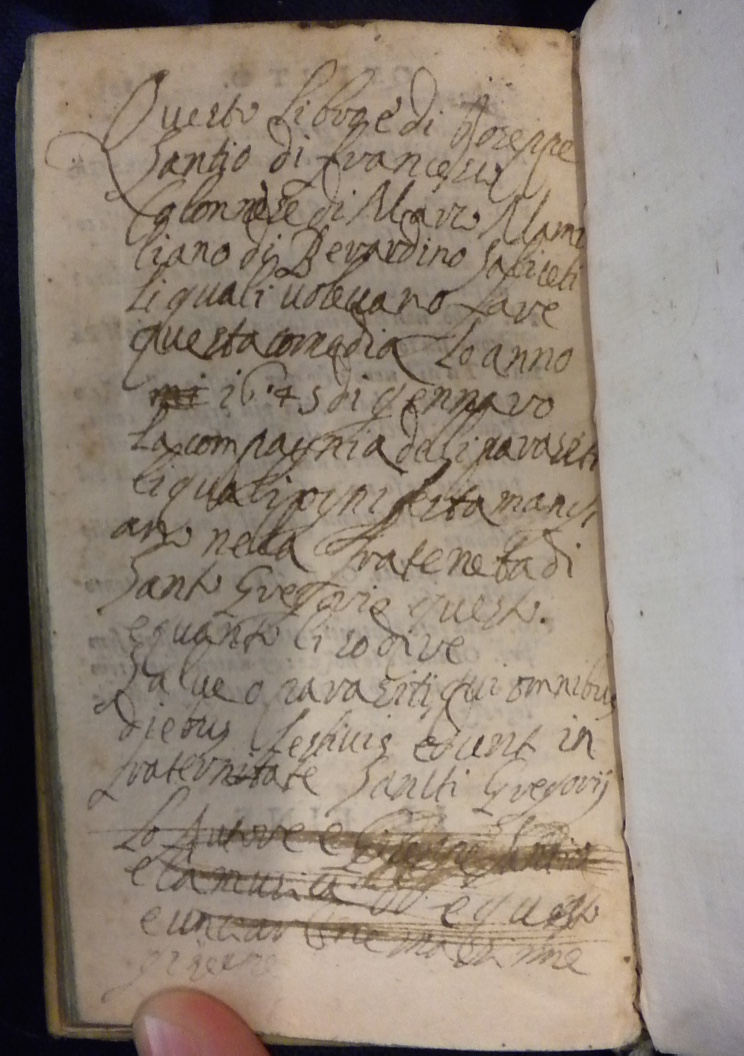 Questo libro è di Gioseppe
Santio di francescho
Colonnese di Marzo Mami
liano di Berardino Saliceti
li quali volevano fare
questa comedia lo anno
1645 di gennaro
la compagnia delli parasiti
li quali ogni festa mangi
ano nella frateneta di
Santo Gregorio questo.
e quanto li so dire
Salve o parasiti qui omnibus
diebus festivis edunt in
fraternitate Sancti Gregorij
Lo Autore e Gioseppe Santio
e la musica e questo
e una